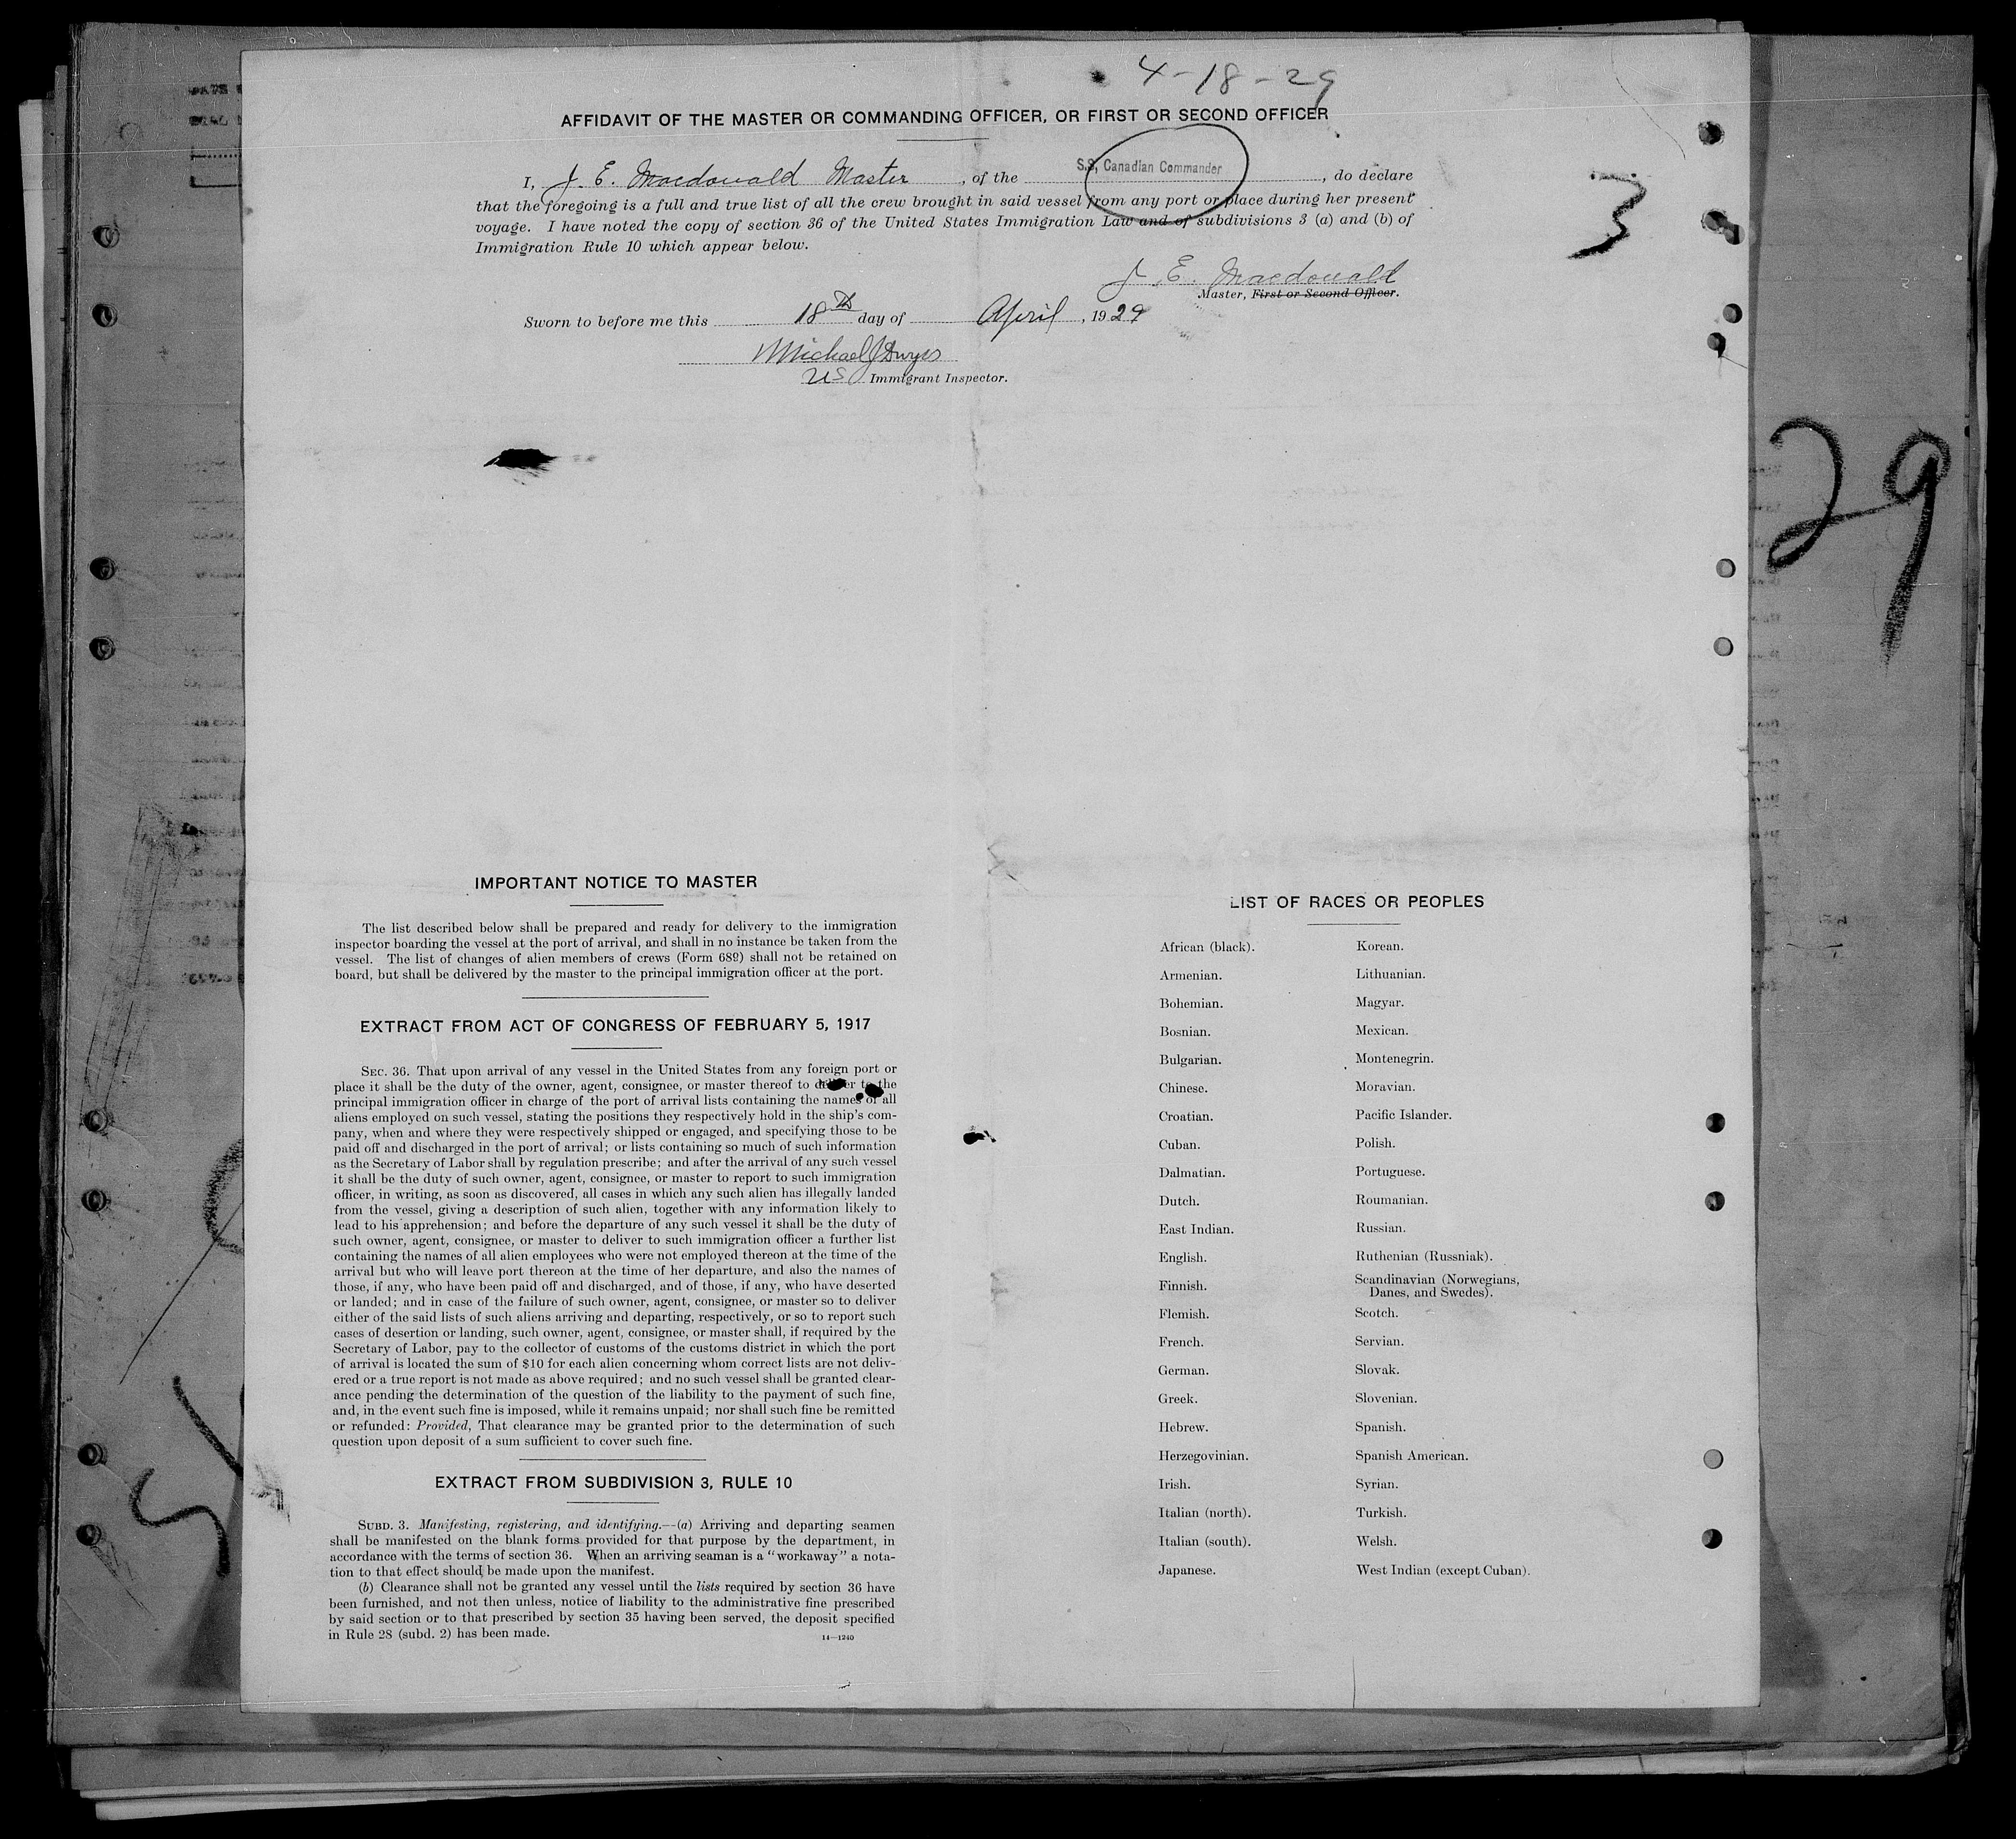 4-18-29
AFFIDAVIT OF THE MASTER OR COMMANDING OFFICER, OR FIRST OR SECOND OFFICER
I, J. E. Macdonald Master, of the S.S. Canadian Commander, do declare
that the foregoing is a full and true list of all the crew brought in said vessel from any port or place during her present
voyage. I have noted the copy of section 36 of the United States Immigration Law and of subdivisions 3 (a) and (b) of
Immigration Rule 10 which appear below.
3
J. E. Macdonald
Master, First or Second Officer.
Sworn to before me this 18th day of April, 1929
Michael J Dwyer
US Immigrant Inspector.
29
IMPORTANT NOTICE TO MASTER
The list described below shall be prepared and ready for delivery to the immigration
inspector boarding the vessel at the port of arrival, and shall in no instance be taken from the
vessel. The list of changes of alien members of crews (Form 689) shall not be retained on
board, but shall be delivered by the master to the principal immigration officer at the port.
EXTRACT FROM ACT OF CONGRESS OF FEBRUARY 5, 1917
SEC. 36. That upon arrival of any vessel in the United States from any foreign port or
place it shall be the duty of the owner, agent, consignee, or master thereof to deliver to the
principal immigration officer in charge of the port of arrival lists containing the names of all
aliens employed on such vessel, stating the positions they respectively hold in the ship's com-
pany, when and where they were respectively shipped or engaged, and specifying those to be
paid off and discharged in the port of arrival; or lists containing so much of such information
as the Secretary of Labor shall by regulation prescribe; and after the arrival of any such vessel
it shall be the duty of such owner, agent, consignee, or master to report to such immigration
officer, in writing, as soon as discovered, all cases in which any such alien has illegally landed
from the vessel, giving a description of such alien, together with any information likely to
lead to his apprehension; and before the departure of any such vessel it shall be the duty of
such owner, agent, consignee, or master to deliver to such immigration officer a further list
containing the names of all alien employees who were not employed thereon at the time of the
arrival but who will leave port thereon at the time of her departure, and also the names of
those, if any, who have been paid off and discharged, and of those, if any, who have deserted
or landed; and in case of the failure of such owner, agent, consignee, or master so to deliver
either of the said lists of such aliens arriving and departing, respectively, or so to report such
cases of desertion or landing, such owner, agent, consignee, or master shall, if required by the
Secretary of Labor, pay to the collector of customs of the customs district in which the port
of arrival is located the sum of $10 for each alien concerning whom correct lists are not deliv-
ered or a true report is not made as above required; and no such vessel shall be granted clear-
ance pending the determination of the question of the liability to the payment of such fine,
and, in the event such fine is imposed, while it remains unpaid; nor shall such fine be remitted
or refunded: Provided, That clearance may be granted prior to the determination of such
question upon deposit of a sum sufficient to cover such fine.
EXTRACT FROM SUBDIVISION 3, RULE 10
SUBD. 3. Manifesting, registering, and identifying.—(a) Arriving and departing seamen
shall be manifested on the blank forms provided for that purpose by the department, in
accordance with the terms of section 36. When an arriving seaman is a "workaway" a nota-
tion to that effect should be made upon the manifest.
(b) Clearance shall not be granted any vessel until the lists required by section 36 have
been furnished, and not then unless, notice of liability to the administrative fine prescribed
by said section or to that prescribed by section 35 having been served, the deposit specified
in Rule 28 (subd. 2) has been made.
14—1240
LIST OF RACES OR PEOPLES
African (black).
Armenian.
Bohemian.
Bosnian.
Bulgarian.
Chinese.
Croatian.
Cuban.
Dalmatian.
Dutch.
East Indian.
English.
Finnish.
Flemish.
French.
German.
Greek.
Hebrew.
Herzegovinian.
Irish.
Italian (north).
Italian (south).
Japanese.
Korean.
Lithuanian.
Magyar.
Mexican.
Montenegrin.
Moravian.
Pacific Islander.
Polish.
Portuguese.
Roumanian.
Russian.
Ruthenian (Russniak).
Scandinavian (Norwegians,
Danes, and Swedes).
Scotch.
Servian.
Slovak.
Slovenian.
Spanish.
Spanish American.
Syrian.
Turkish.
Welsh.
West Indian (except Cuban).